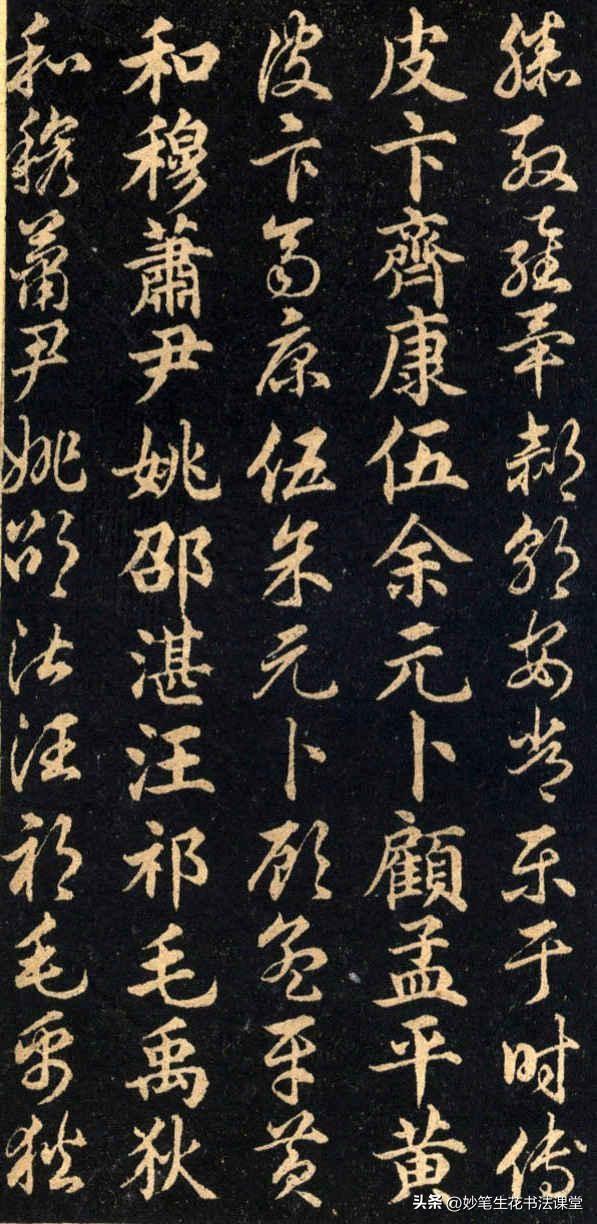 滕殷羅畢郝鄔安常樂于時傅
皮卞齊康伍余元卜顧孟平黃
皮卞齊康伍余元卜顧孟平黃
和穆蕭尹姚邵湛汪祁毛禹狄
和穆蕭尹姚邵湛汪祁毛禹狄
头条 @妙笔生花书法课堂